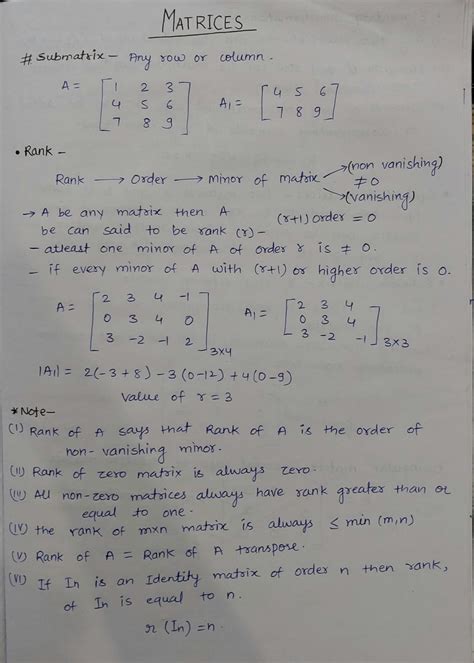 MATRICES
# Submatrix – Any row or column.
A = [ 1 2 3
4 5 6
7 8 9 ]
A₁ = [ 4 5 6
7 8 9 ]
• Rank –
Rank → Order → minor of matrix → (non vanishing) ≠ 0
→ (vanishing)
(r+1) order = 0
→ A be any matrix then A
be can said to be rank (r) –
– atleast one minor of A of order r is ≠ 0.
– if every minor of A with (r+1) or higher order is 0.
A = [ 2 3 4 -1
0 3 4 0
3 -2 -1 2 ] 3×4
A₁ = [ 2 3 4
0 3 4
3 -2 -1 ] 3×3
|A₁| = 2(-3+8) – 3(0-12) + 4(0-9)
value of r = 3
* Note –
(I) Rank of A says that Rank of A is the order of
non-vanishing minor.
(II) Rank of zero matrix is always zero.
(III) All non-zero matrices always have rank greater than or
equal to one.
(IV) the rank of m×n matrix is always ≤ min (m,n)
(V) Rank of A = Rank of A transpose.
(VI) If In is an Identity matrix of order n then rank,
of In is equal to n.
r (In) = n.